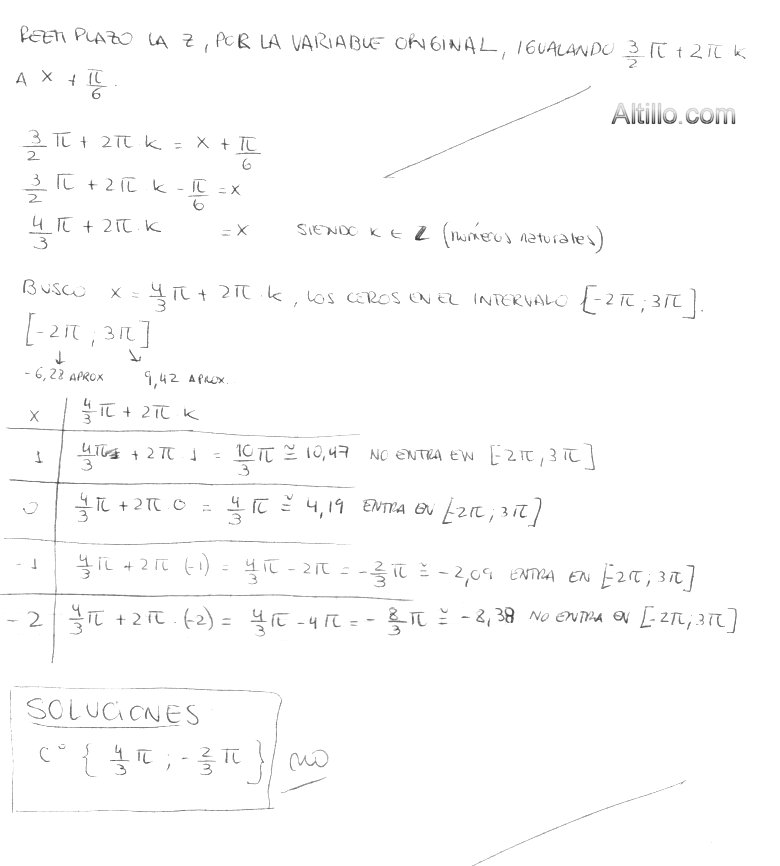 REEMPLAZO LA Z, POR LA VARIABLE ORIGINAL, IGUALANDO 3/2 π + 2π k
A X + π/6.
Altillo.com
3/2 π + 2π k = x + π/6
3/2 π + 2π k - π/6 = x
4/3 π + 2π · k = x SIENDO K ∈ Z (números naturales)
BUSCO X = 4/3 π + 2π · k, LOS CEROS EN EL INTERVALO [-2π ; 3π].
[-2π ; 3π]
↓ ↘
-6,28 APROX 9,42 APROX.
X | 4/3 π + 2π k
1 | 4π/3 + 2π 1 = 10/3 π ≅ 10,47 NO ENTRA EN [-2π, 3π]
0 | 4/3 π + 2π · 0 = 4/3 π ≅ 4,19 ENTRA EN [-2π ; 3π]
-1 | 4/3 π + 2π (-1) = 4/3 π - 2π = -2/3 π ≅ -2,09 ENTRA EN [-2π ; 3π]
-2 | 4/3 π + 2π · (-2) = 4/3 π - 4π = -8/3 π ≅ -8,38 NO ENTRA EN [-2π ; 3π]
SOLUCIONES
C° { 4/3 π ; -2/3 π } NO